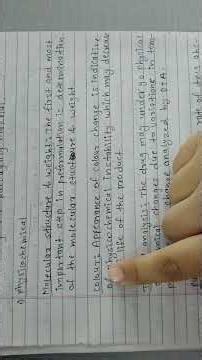 1) Physicochemical
Molecular structure & weight : The first and most
important step in preformulation is determination
of the molecular structure & weight
Colour : Appearance of colour change is indicative
of physicochemical instability which may decrease
life of the product
analysis : The drug may undergo physical
chemical changes due to variations in tem-
change analyzed by DTA.